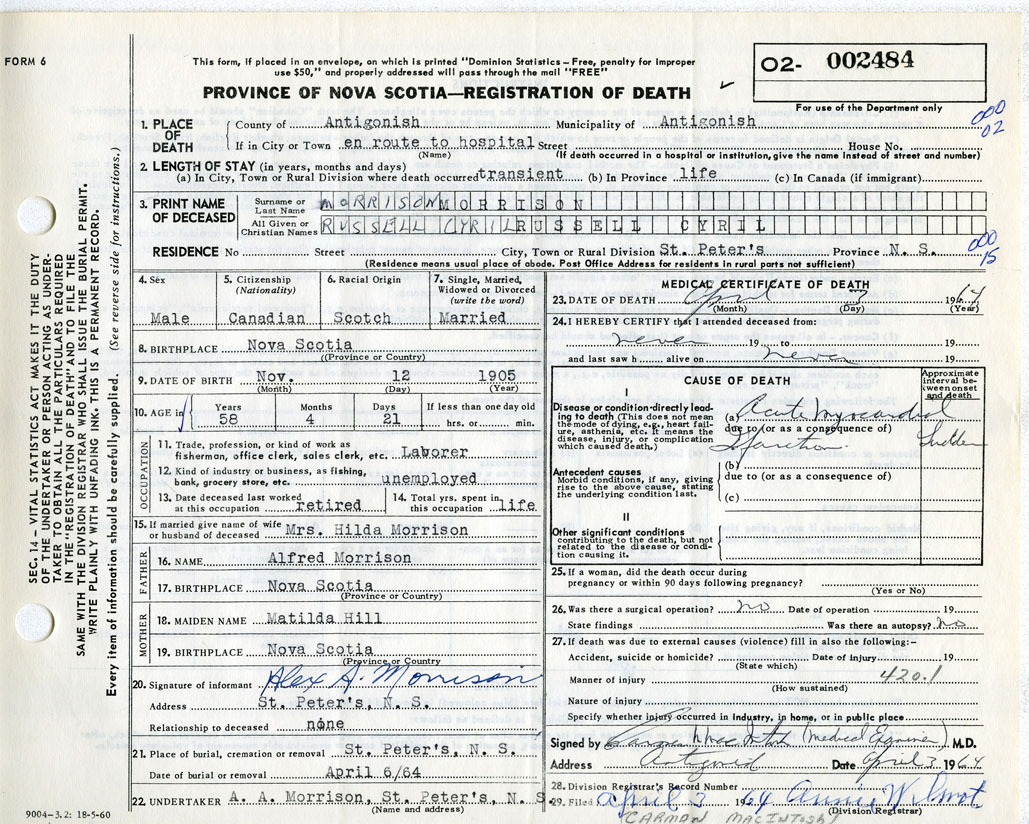 FORM 6
This form, if placed in an envelope, on which is printed "Dominion Statistics – Free, penalty for improper
use $50," and properly addressed will pass through the mail "FREE"
PROVINCE OF NOVA SCOTIA—REGISTRATION OF DEATH
O2- 002484
For use of the Department only
000
02
1. PLACE OF DEATH
County of Antigonish Municipality of Antigonish
If in City or Town en route to hospital Street House No.
(Name) (If death occurred in a hospital or institution, give the name instead of street and number)
2. LENGTH OF STAY (in years, months and days)
(a) In City, Town or Rural Division where death occurred transient (b) In Province life (c) In Canada (if immigrant)
3. PRINT NAME OF DECEASED
Surname or Last Name MORRISON MORRISON
All Given or Christian Names RUSSELL CYRIL RUSSELL CYRIL
000
15
RESIDENCE No Street City, Town or Rural Division St. Peter's Province N. S.
(Residence means usual place of abode. Post Office Address for residents in rural parts not sufficient)
4. Sex Male
5. Citizenship (Nationality) Canadian
6. Racial Origin Scotch
7. Single, Married, Widowed or Divorced (write the word) Married
8. BIRTHPLACE Nova Scotia
(Province or Country)
9. DATE OF BIRTH Nov. 12 1905
(Month) (Day) (Year)
10. AGE in Years Months Days If less than one day old
58 4 21 hrs. or min.
OCCUPATION
11. Trade, profession, or kind of work as
fisherman, office clerk, sales clerk, etc. Laborer
12. Kind of industry or business, as fishing,
bank, grocery store, etc. unemployed
13. Date deceased last worked
at this occupation retired
14. Total yrs. spent in
this occupation life
15. If married give name of wife
or husband of deceased Mrs. Hilda Morrison
FATHER
16. NAME Alfred Morrison
17. BIRTHPLACE Nova Scotia
(Province or Country)
MOTHER
18. MAIDEN NAME Matilda Hill
19. BIRTHPLACE Nova Scotia
(Province or Country
20. Signature of informant Alex A. Morrison
Address St. Peter's, N. S.
Relationship to deceased none
21. Place of burial, cremation or removal St. Peter's, N. S.
Date of burial or removal April 6/64
22. UNDERTAKER A. A. Morrison, St. Peter's, N. S.
(Name and address)
MEDICAL CERTIFICATE OF DEATH
23. DATE OF DEATH April 3 1964
(Month) (Day) (Year)
24. I HEREBY CERTIFY that I attended deceased from:
never 19 to 19
and last saw h alive on never 19
CAUSE OF DEATH
Approximate interval between onset and death
I
Disease or condition directly leading to death (This does not mean
the mode of dying, e.g., heart failure, asthenia, etc. It means the
disease, injury, or complication
which caused death.)
(a) Acute myocardial
due to (or as a consequence of)
Infarction Sudden
Antecedent causes
Morbid conditions, if any, giving
rise to the above cause, stating
the underlying condition last.
(b)
due to (or as a consequence of)
(c)
II
Other significant conditions
contributing to the death, but not
related to the disease or condition causing it.
25. If a woman, did the death occur during
pregnancy or within 90 days following pregnancy?
(Yes or No)
26. Was there a surgical operation? no Date of operation 19
State findings Was there an autopsy? no
27. If death was due to external causes (violence) fill in also the following:–
Accident, suicide or homicide? Date of injury 19
(State which)
Manner of injury 420.1
(How sustained)
Nature of injury
Specify whether injury occurred in Industry, in home, or in public place
Signed by (Medical Examiner) M.D.
Address Antigonish Date April 3 1964
28. Division Registrar's Record Number
29. Filed April 3 1964 Annie Wilmot
(Division Registrar)
(CARMAN MACINTOSH)
SEC. 14 – VITAL STATISTICS ACT MAKES IT THE DUTY
OF THE UNDERTAKER OR PERSON ACTING AS UNDERTAKER TO OBTAIN ALL THE PARTICULARS REQUIRED
IN THE "REGISTRATION OF DEATH" AND TO FILE THE
SAME WITH THE DIVISION REGISTRAR WHO SHALL ISSUE THE BURIAL PERMIT.
WRITE PLAINLY WITH UNFADING INK. THIS IS A PERMANENT RECORD.
Every item of information should be carefully supplied. (See reverse side for instructions.)
9004-3.2: 18-5-60